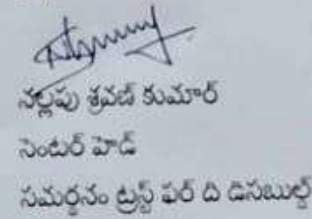 నల్లపు శ్రవణ్ కుమార్
సెంటర్ హెడ్
సమర్థనం ట్రస్ట్ ఫర్ ది డిసబుల్డ్